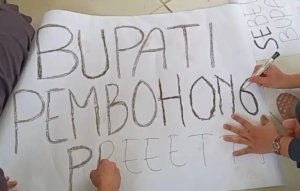 BUPATI
PEMBOHONG
PREEET
SEBE
BUPA